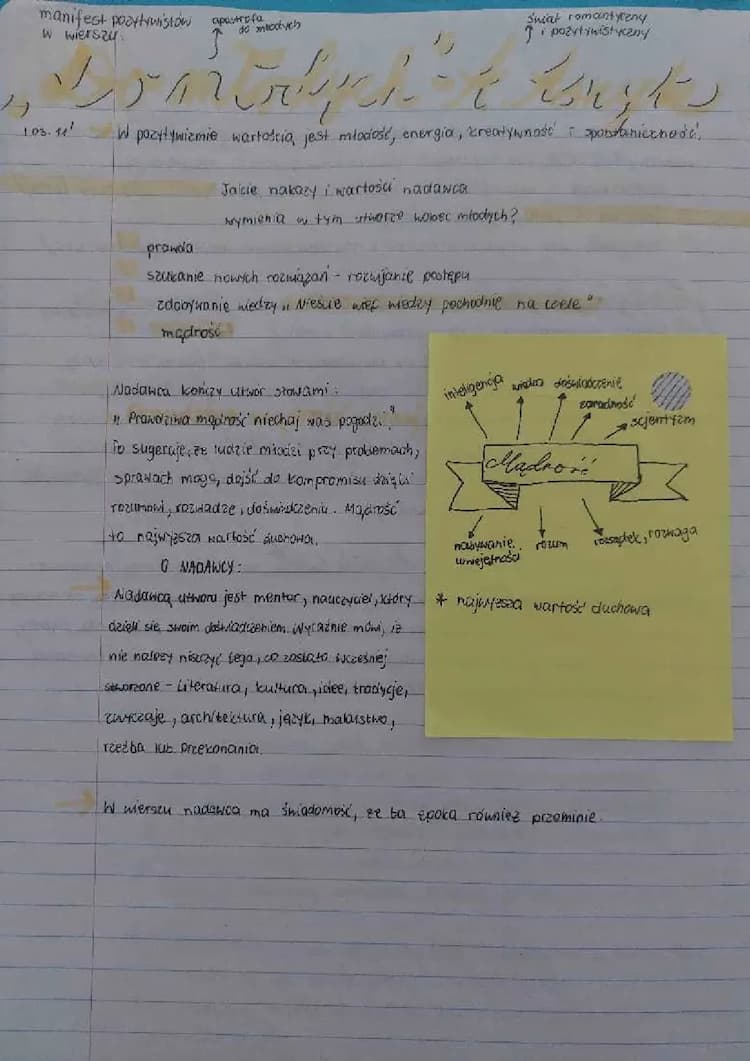 manifest pozytywistów
w wierszu
apostrofa
do młodych
świat romantyczny
i pozytywistyczny
„Do młodych" A. Asnyk
1.03.21'
W pozytywizmie wartością jest młodość, energia, kreatywność i spontaniczność.
Jakie nakazy i wartości nadawca
wymienia w tym utworze wobec młodych?
prawda
szukanie nowych rozwiązań - rozwijanie postępu
zdobywanie wiedzy „Nieście więc wiedzy pochodnię na czele"
mądrość
Nadawca kończy utwór słowami:
„Prawdziwa mądrość niechaj was pogodzi"
To sugeruje, że ludzie młodzi przy problemach,
sprawach mogą dojść do kompromisu dzięki
rozumowi, rozwadze, doświadczeniu. Mądrość
to najwyższa wartość duchowa.
O NADAWCY:
Nadawcą utworu jest mentor, nauczyciel, który
dzieli się swoim doświadczeniem. Wyraźnie mówi, iż
nie należy niszczyć tego, co zostało wcześniej
stworzone - literatura, kultura, idee, tradycje,
zwyczaje, architektura, język, malarstwo,
rzeźba lub przekonania.
W wierszu nadawca ma świadomość, że ta epoka również przeminie.
inteligencja
wiedza
doświadczenie
zaradność
scjentyzm
Mądrość
nabywanie
umiejętności
rozum
rozsądek, rozwaga
* najwyższa wartość duchowa